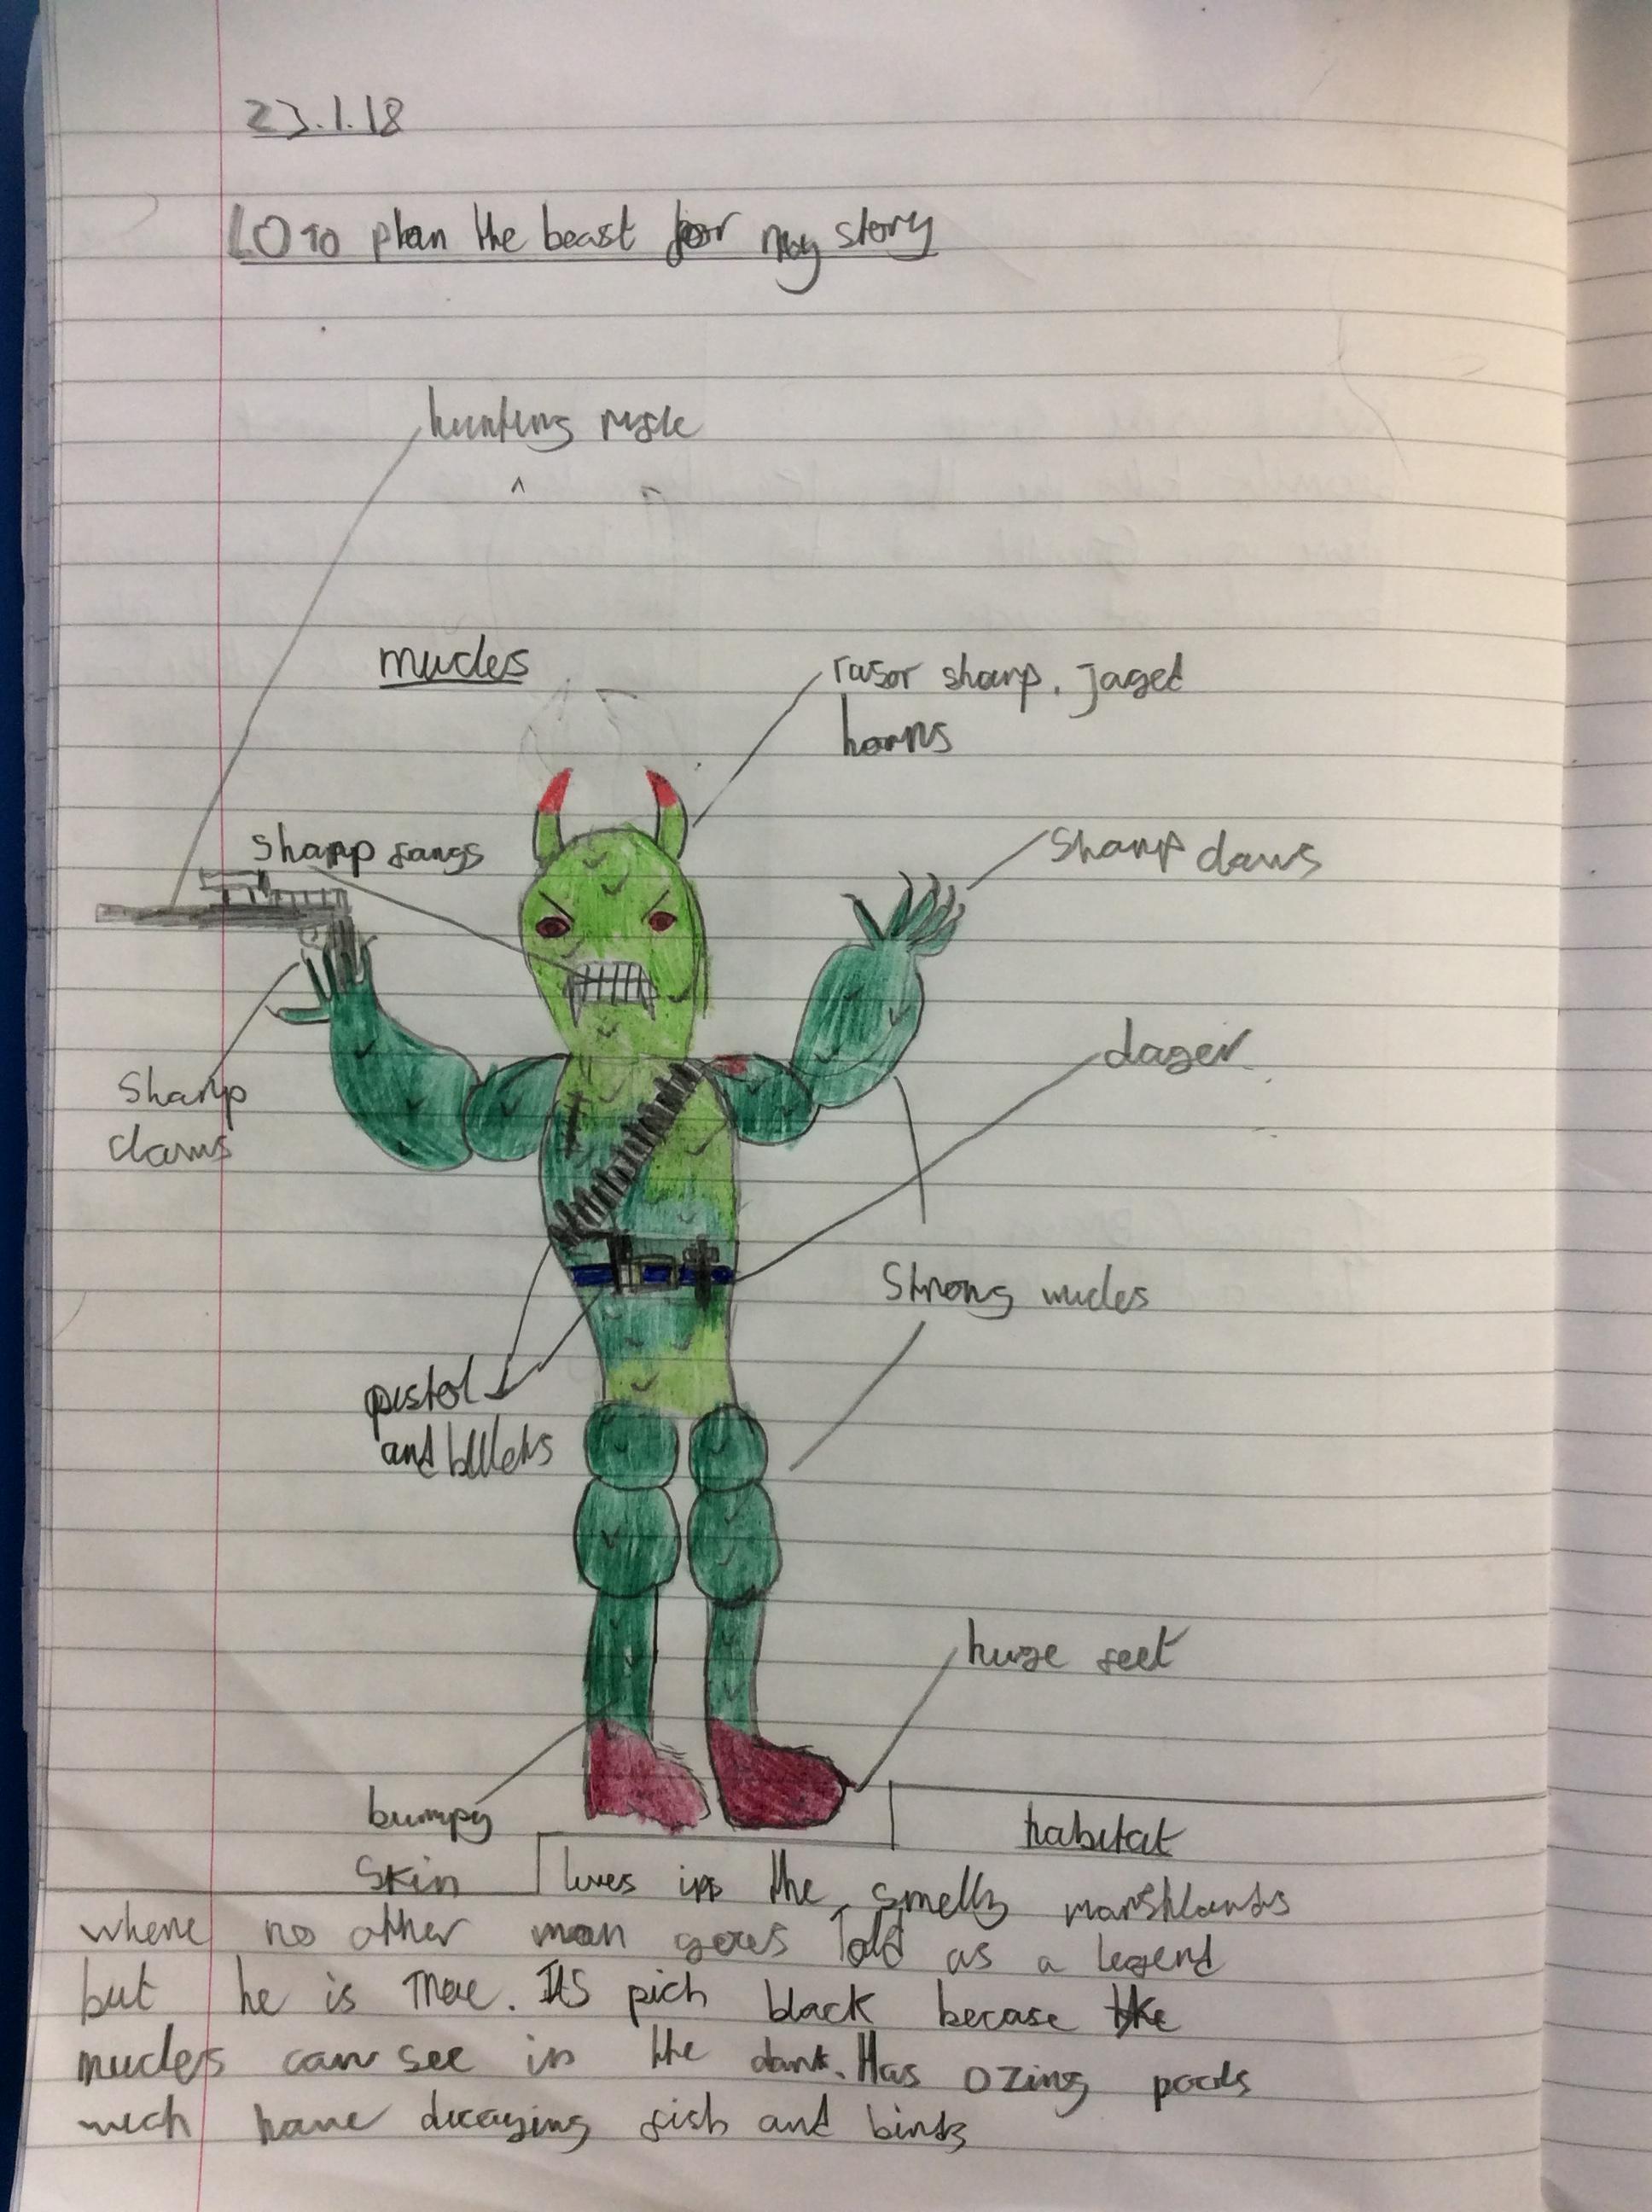 23.1.18
LO To plan the beast for my story
hunting rifle
mucles
rasor sharp, jaged
horns
sharp fangs
sharp claws
sharp
claws
dager
Strong mucles
pistol
and bullets
huge feet
bumpy
skin
habitat
lives in the smelly marshlands
where no other man goes Told as a legend
but he is There. Its pich black becase the
mucles can see in the dark. Has ozing pools
wich have decaying fish and birds